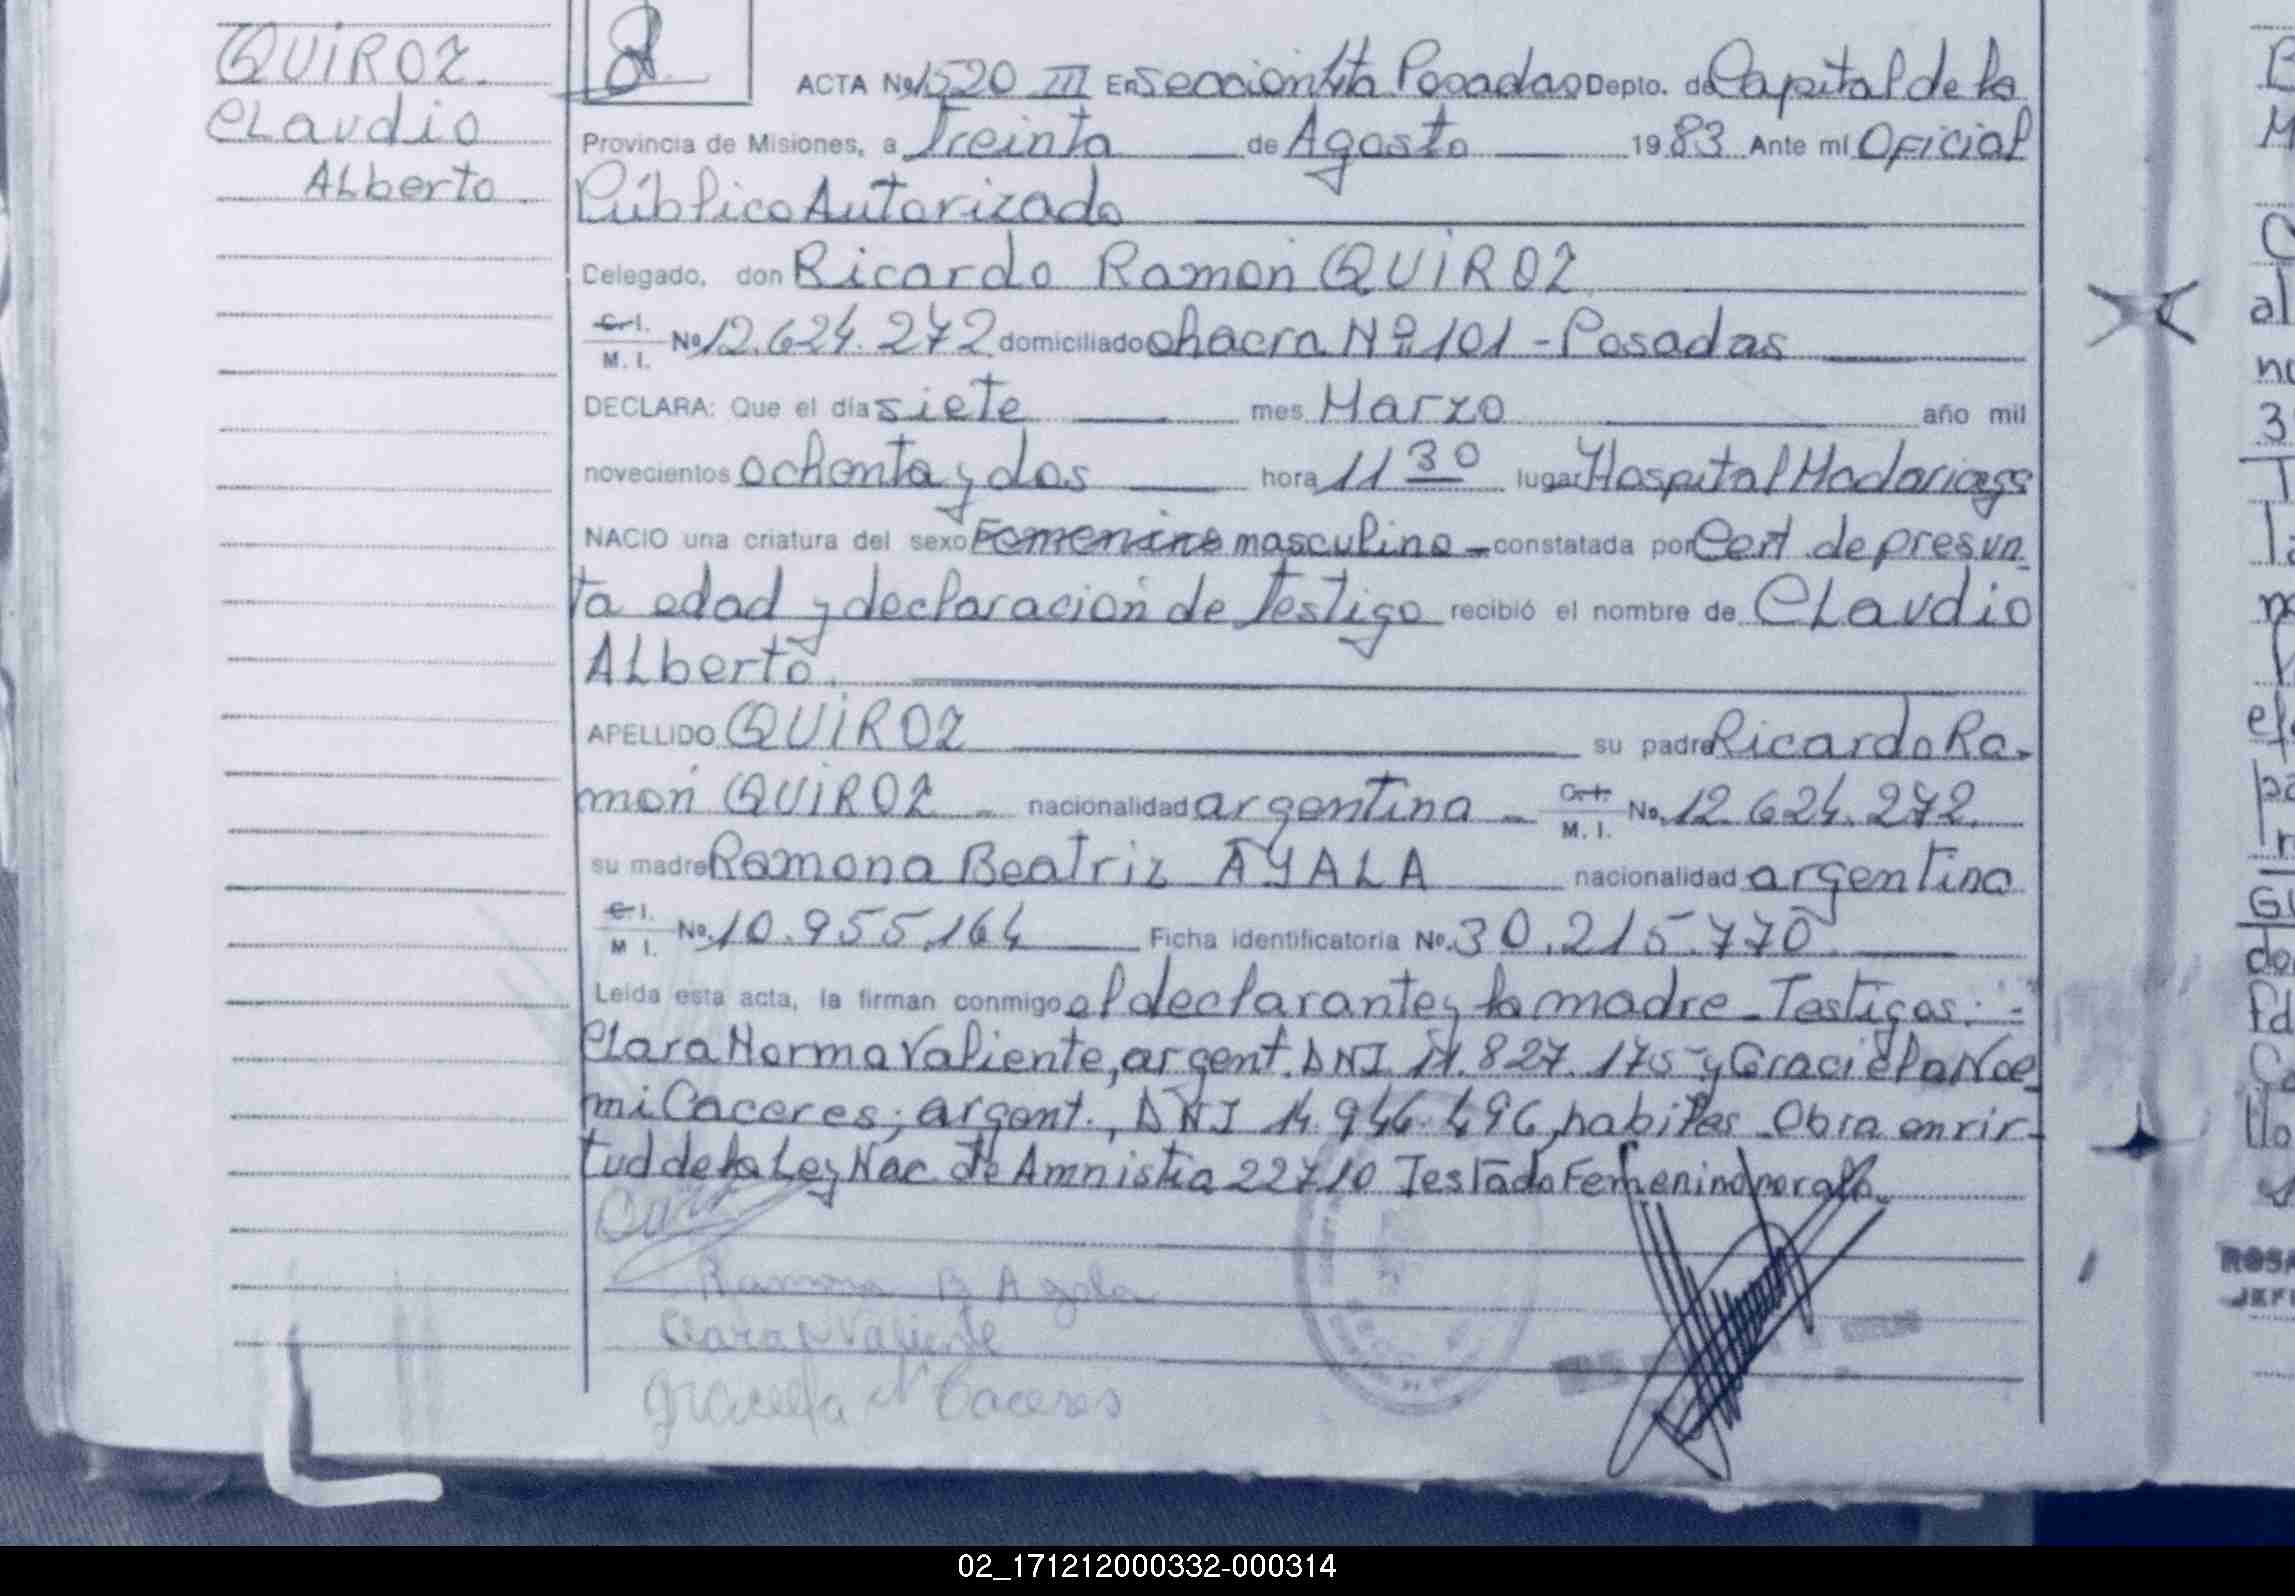 QUIROZ
CLaudio
ALberto
ACTA Nº 1520 III En Sección 4ta Posadas Depto. de Capital de la
Provincia de Misiones, a Treinta de Agosto 1983 Ante mí Oficial
Público Autorizado
Celegado, don Ricardo Ramón QUIROZ
C. I. M. I. Nº 12.624.272 domiciliado chacra Nº 101 - Posadas
DECLARA: Que el día siete mes Marzo año mil
novecientos ochenta y dos hora 11 30 lugar Hospital Madariaga
NACIO una criatura del sexo Femenino masculino - constatada por Cert de presun
ta edad y declaración de Testigo recibió el nombre de CLaudio
ALberto.
APELLIDO QUIROZ su padre Ricardo Ra-
món QUIROZ - nacionalidad argentina - C. I. M. I. No. 12.624.272.
su madre Ramona Beatriz AYALA nacionalidad argentina
C. I. M I. Nº. 10.955.164 Ficha identificatoria Nº. 30.215.770
Leída esta acta, la firman conmigo el declarante y la madre - Testigos: -
Clara Norma Valiente, argent. DNI 11.827.175 y Graciela Noe
mi Caceres, argent., DNI 14.946.496, habiles - Obra en vir-
tud de la Ley Nac. de Amnistia 22710 Testado Femenino no vale.
Ramona B Ayala
Clara N Valiente
Graciela N Caceres
ROSA
JEFE
02_171212000332-000314